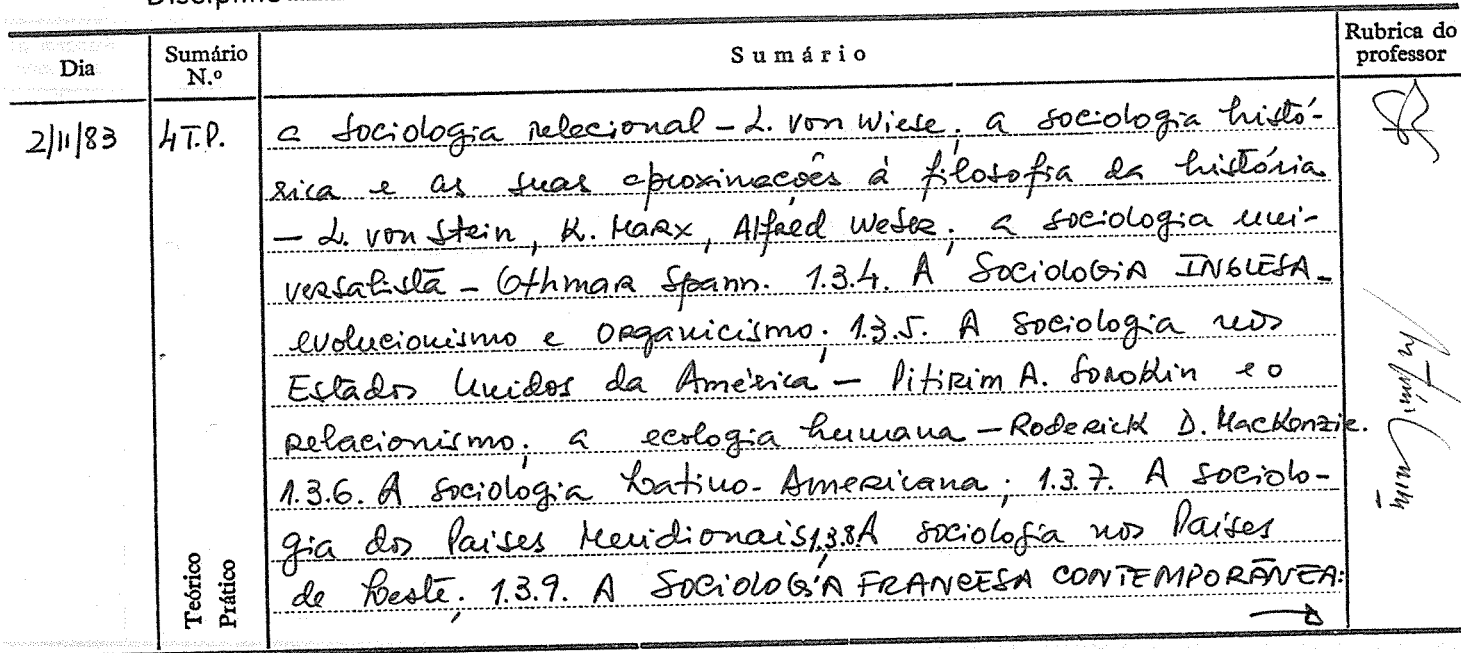 Dia
Sumário N.º
Sumário
Rubrica do professor
2/11/83
4T.P.
a sociologia relacional - L. von Wiese; a sociologia histó-
rica e as suas aproximações à filosofia da história
- L. von Stein, K. Marx, Alfred Weber; a sociologia uni-
versalista - Othmar Spann. 1.3.4. A SOCIOLOGIA INGLESA -
evolucionismo e organicismo; 1.3.5. A sociologia nos
Estados Unidos da América - Pitirim A. Sorokin e o
relacionismo; a ecologia humana - Roderick D. MacKenzie.
1.3.6. A sociologia Latino-Americana; 1.3.7. A sociolo-
gia dos Países Meridionais; 1.3.8 A sociologia nos Países
de Leste; 1.3.9. A SOCIOLOGIA FRANCESA CONTEMPORÂNEA:
Teórico
Prático